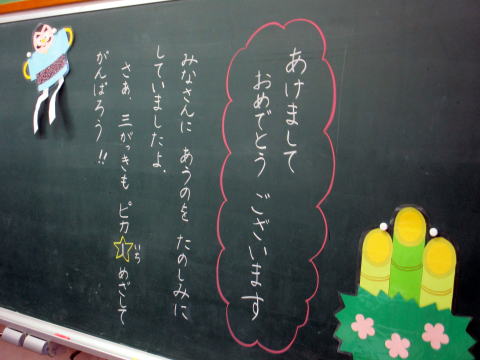 あけまして
おめでとう ございます
みなさんに あうのを たのしみに
していましたよ.
さあ、三がっきも ピカ☆1めざして
いち
がんばろう!!